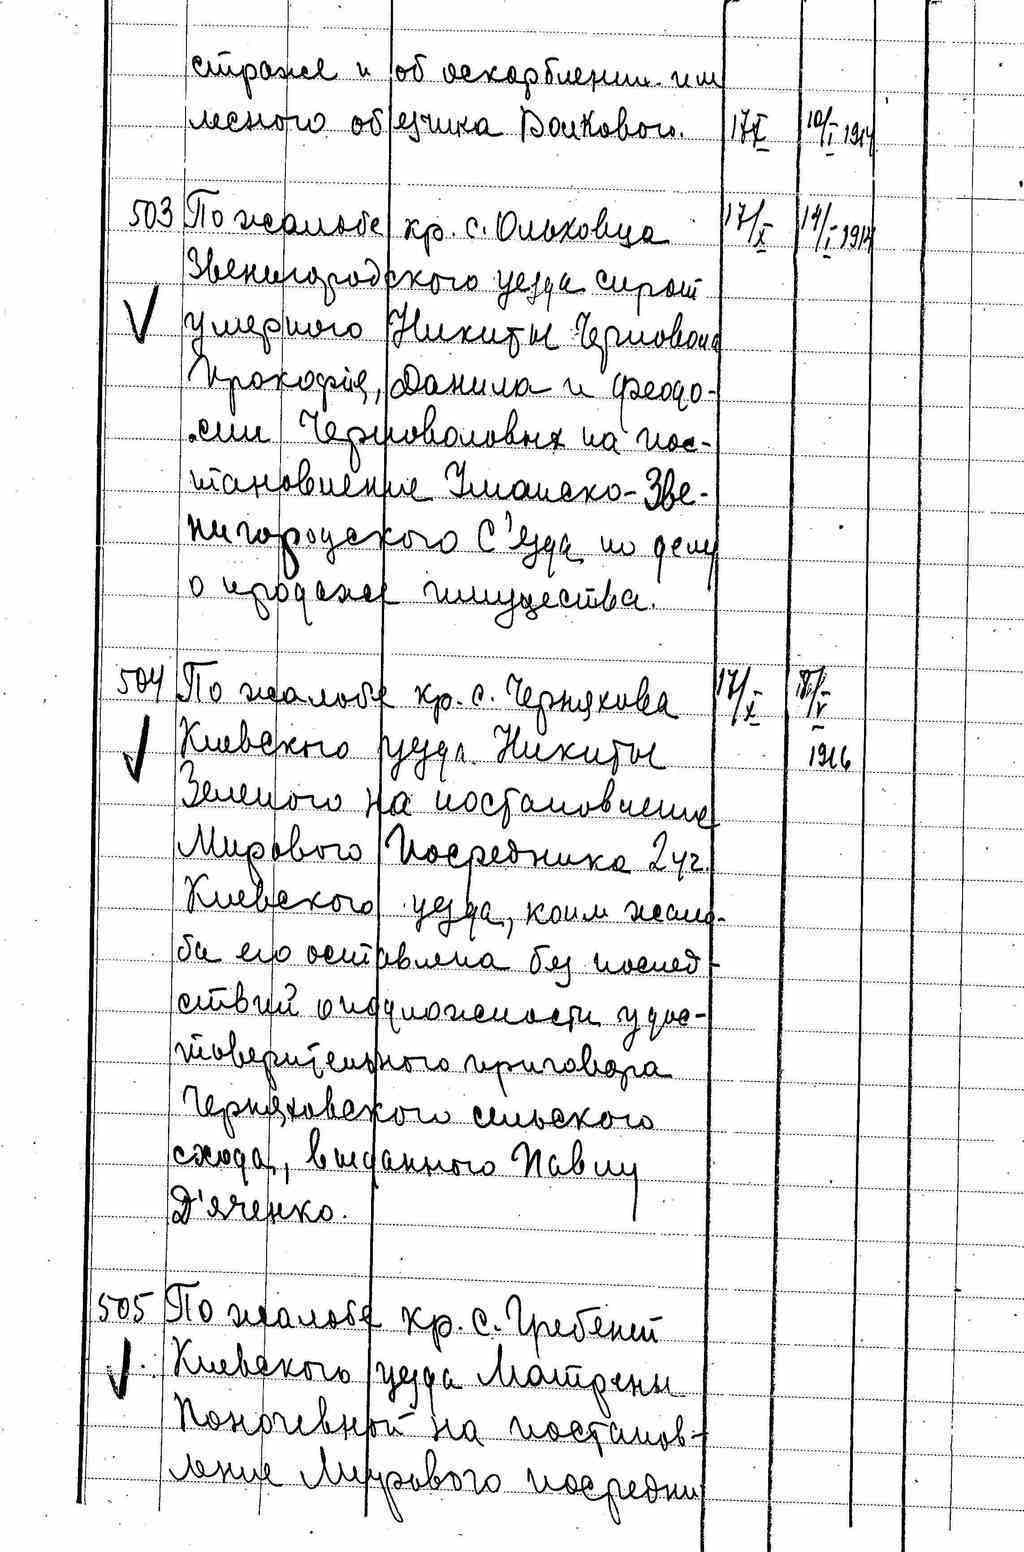 страже и об оскорблении им
лесного объезчика Волкового. 17/X 10/I 1914
503 По жалобе кр. с. Ольховца 17/X 14/I 1914
Звенигородского уезда сирот
умершого Никиты Черновола
Прокофия, Данила и Феодо-
сии Черноволовых на пос-
тановление Уманско-Зве-
нигородского С'езда по делу
о продаже имущества.
504 По жалобе кр. с. Черняхова 17/X
Киевского уезда Никиты 1916
Зеленого на постановление
Мирового Посредника 2 уч.
Киевского уезда, коим жало-
ба его оставлена без послед-
ствий о подложности удос-
товерительного приговора
Черняховского сельского
схода, выданного Павлу
Д'яченко.
505 По жалобе кр. с. Гребеней
Киевского уезда Матрены
Поночевной на постанов-
ление Мирового посредни